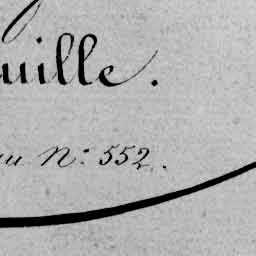 uille.
au N: 552.